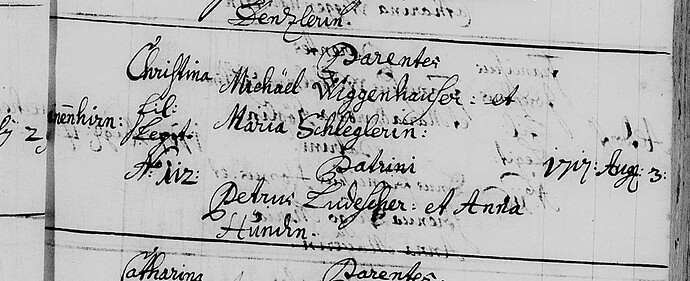 Denzlerin.
Parentes
Christina Michäel Wiggenhauser: et
fil:
Legit. Maria Schleglerin:
No. 112: Patrini 1717: Aug: 3:
Petrus Zudescher: et Anna
Hündin.
Catharina Parentes